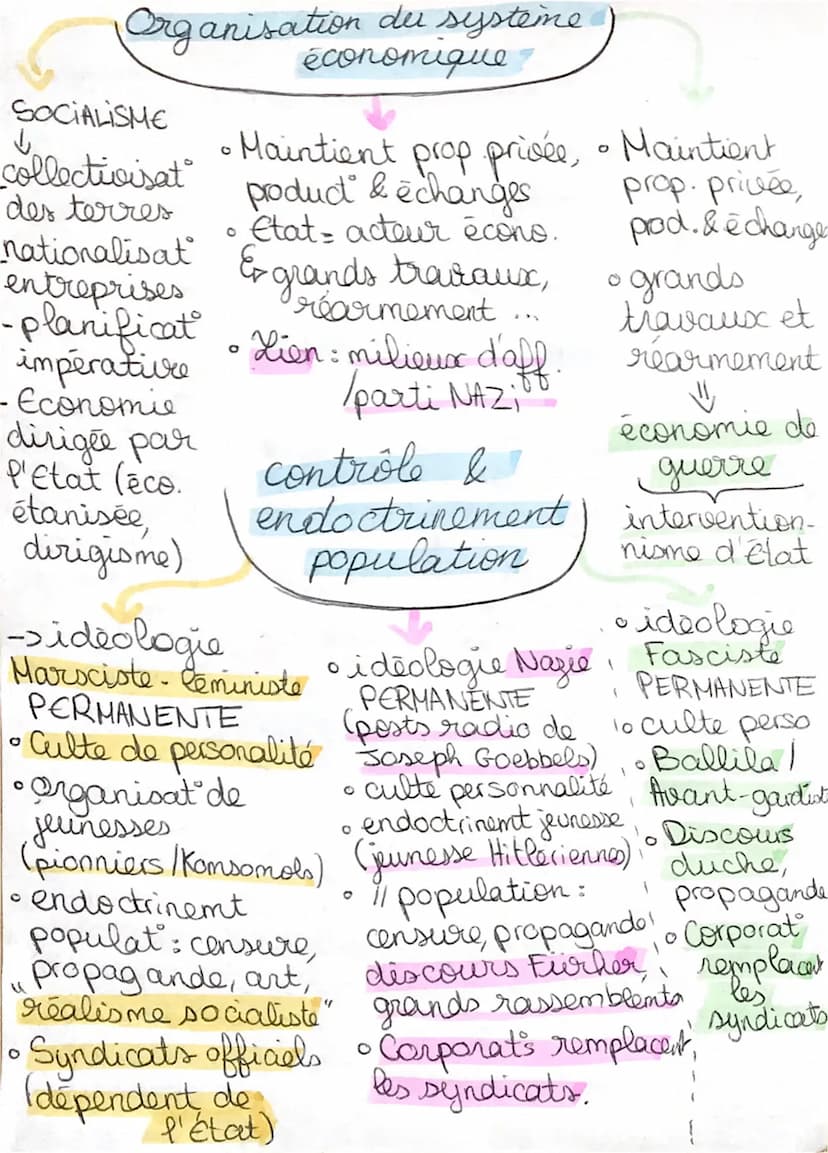 Organisation du système
économique
SOCIALISME
↓
collectivisat°
des terres
nationalisat°
entreprises
-planificat°
impérative
- Economie
dirigée par
l'Etat (éco.
étanisée,
dirigisme)
• Maintient prop. privée,
product° & échanges
• Etat = acteur écono.
↳ grands travaux,
réarmement ...
• Lien : milieux d'aff.
/parti NAZi
• Maintient
prop. privée,
prod. & échange
• grands
travaux et
réarmement
⇓
économie de
guerre
intervention-
nisme d'Etat
contrôle &
endoctrinement
population
-> idéologie
Marxiste - léministe
PERMANENTE
• Culte de personalité
• organisat° de
jeunesses
(pionniers/Komsomols)
• endoctrinemt
populat° : censure,
propagande, art,
"réalisme socialiste"
• Syndicats officiels
(dépendent de
l'État)
• idéologie Nazie
PERMANENTE
(posts radio de
Joseph Goebbels)
• culte personnalité
• endoctrinemt jeunesse
(jeunesse Hitlérienne)
• // population :
censure, propagande
discours Fürher,
grands rassemblemts
• Corporat°s remplacent
les syndicats.
• idéologie
Fasciste
PERMANENTE
• culte perso
• Ballila/
Avant-gardist
• Discours
duche,
propagande
• Corporat°
remplacent
les
syndicats